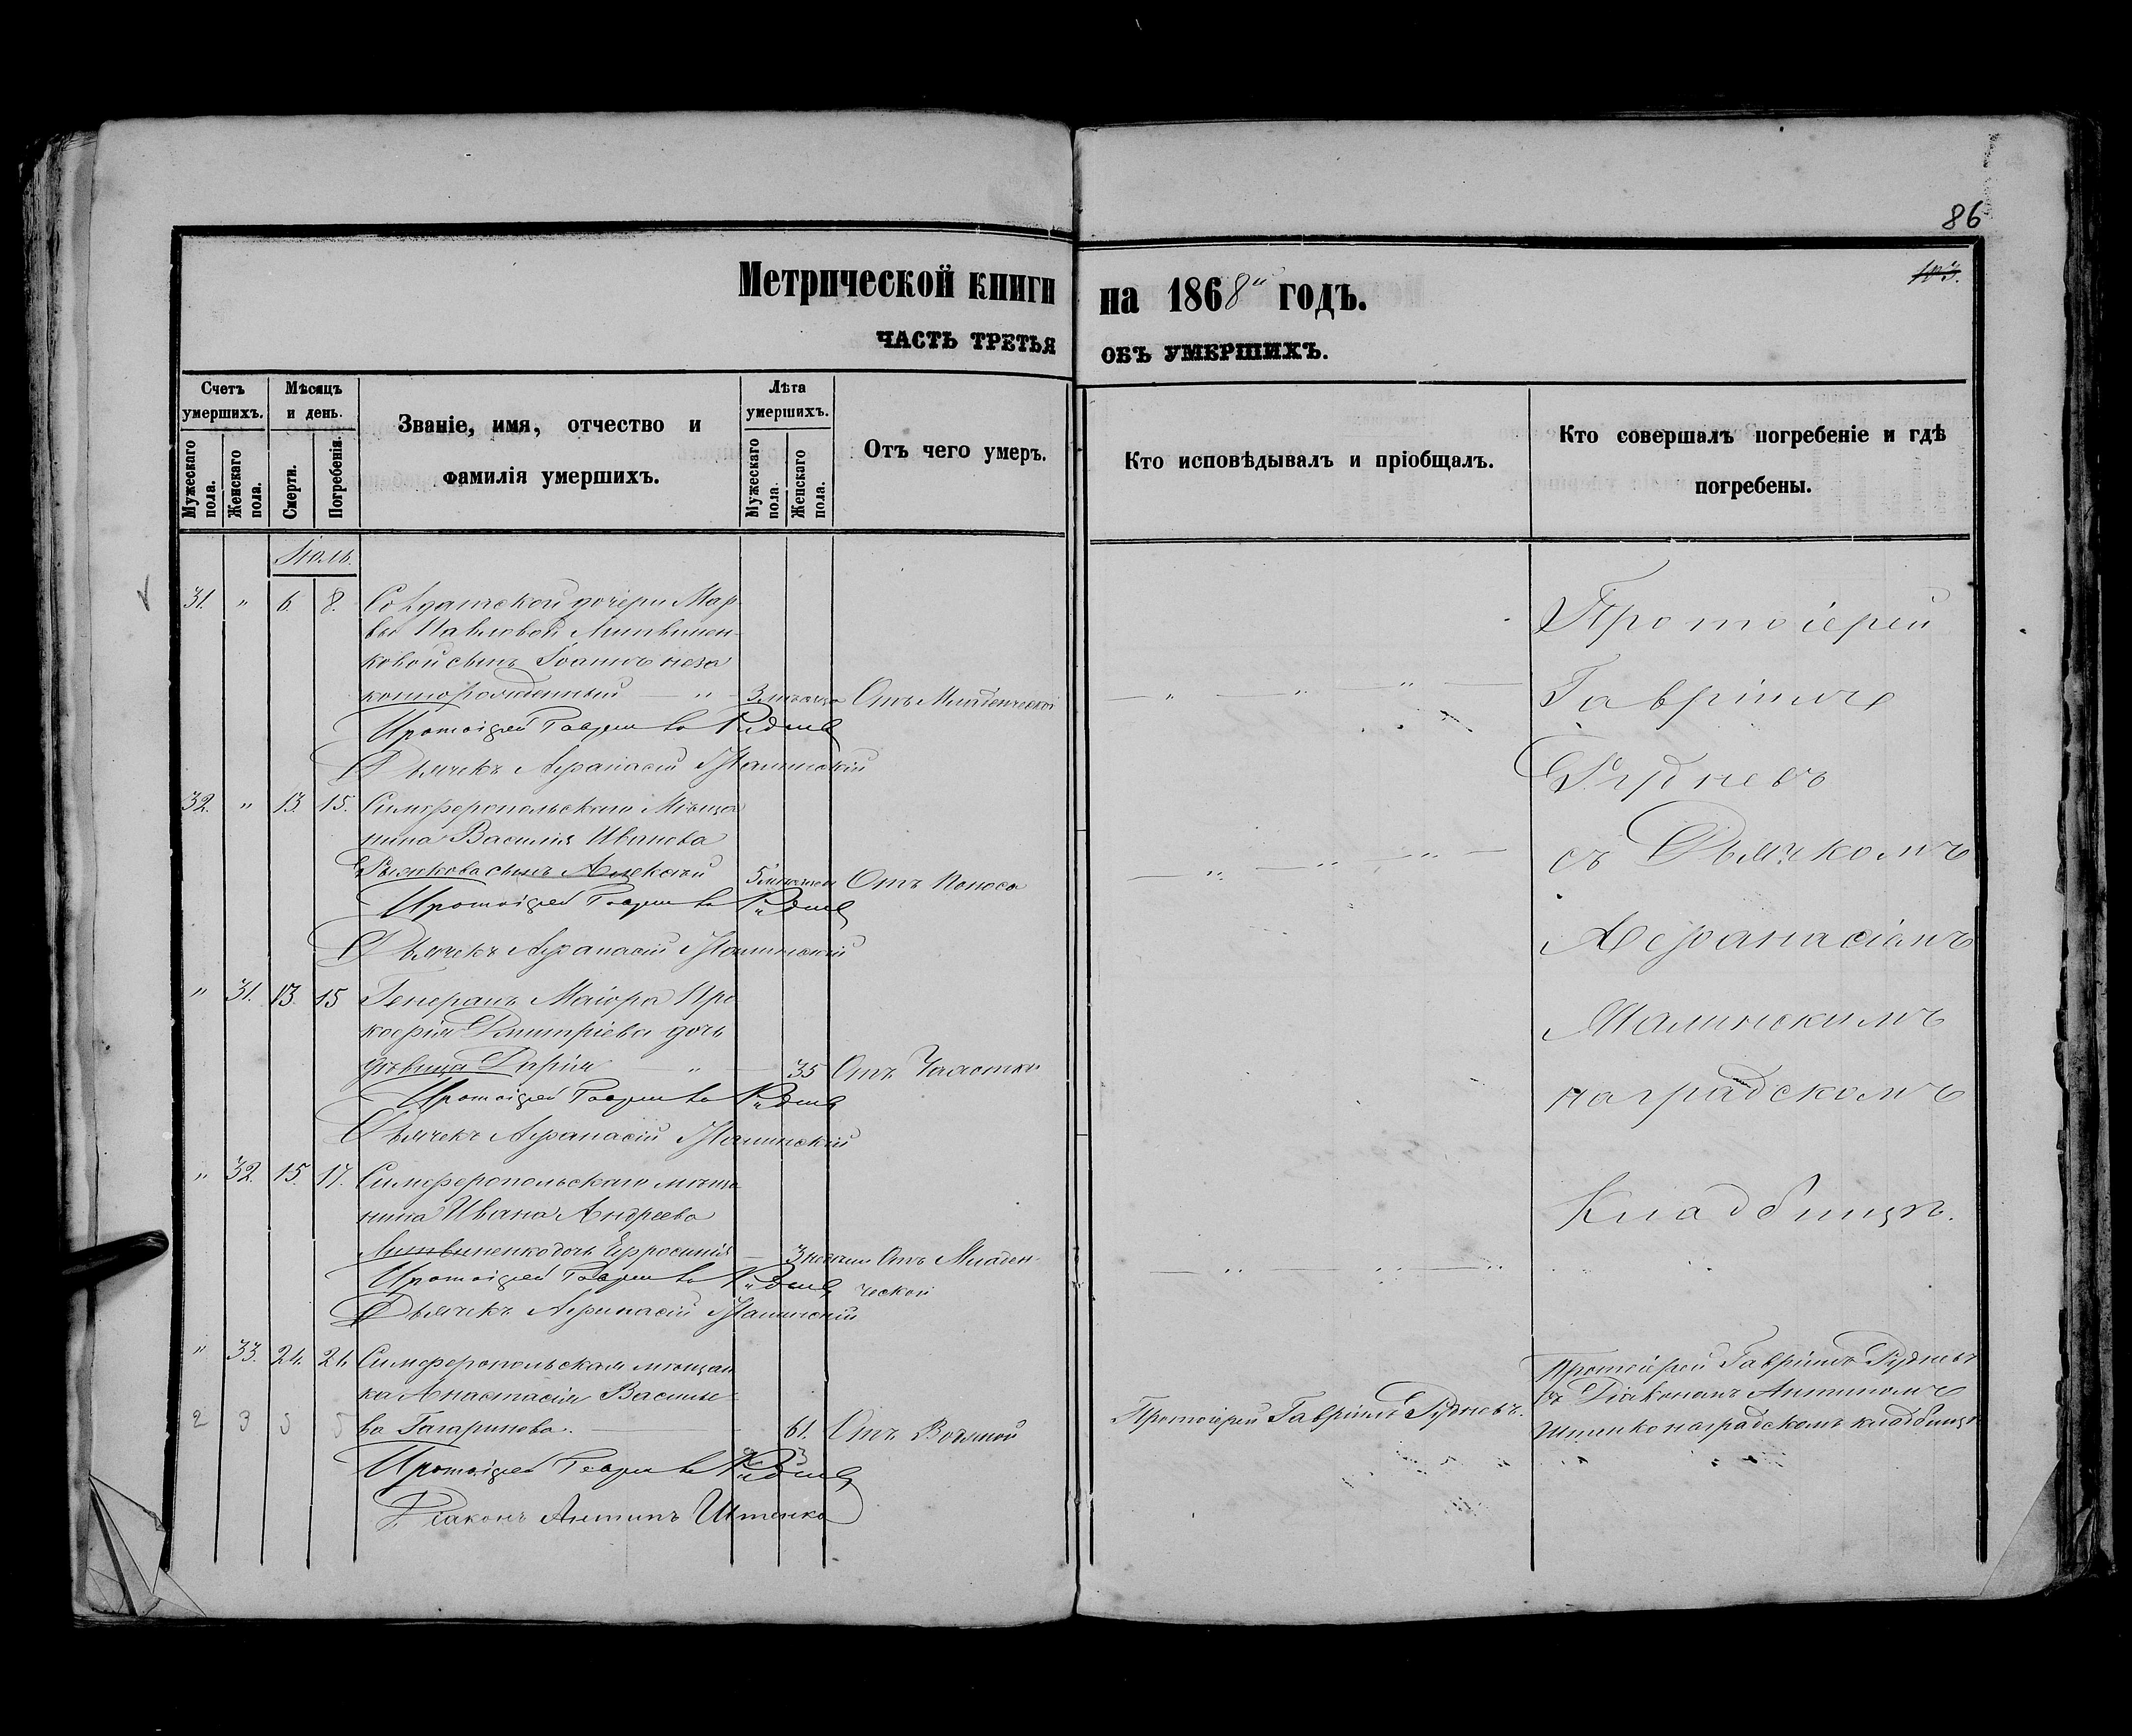 86
Метрической книги на 1868" годъ.
ЧАСТЬ ТРЕТЬЯ ОБЪ УМЕРШИХЪ.
Счетъ умершихъ.
Мужескаго пола.
Женскаго пола.
Мѣсяцъ и день.
Смерти.
Погребенія.
Званіе, имя, отчество и
фамилія умершихъ.
Лѣта умершихъ.
Мужескаго пола.
Женскаго пола.
Отъ чего умеръ.
Кто исповѣдывалъ и пріобщалъ.
Кто совершалъ погребеніе и гдѣ
погребены.
Іюль.
31. " 6. 8. Солдатской дочери Мар-
вы Павловой Литвинен-
ковой сынъ Іоаннъ неза
коннорожденный — " — 3 мѣсяца Отъ Младенческой
Протоіерей Гавріилъ Рудневъ
Дьячекъ Аѳанасій Малинскій
32. " 13. 15. Симферопольскаго Мѣща
нина Василія Иванова
Рыжкова сынъ Алексѣй 5 Отъ Поноса
Протоіерей Гавріилъ Рудневъ
Дьячекъ Аѳанасій Малинскій
" 31. 13. 15 Генералъ Маіора Про
кофія Дмитріева дочь
дѣвица Дарія — " — 35 Отъ Чахотки
Протоіерей Гавріилъ Рудневъ
Дьячекъ Аѳанасій Малинскій
" 32. 15. 17. Симферопольскаго мѣща
нина Ивана Андреева
Литвиненко дочь Ефросинія — 3 Отъ Младен
ческой
Протоіерей Гавріилъ Рудневъ
Дьячекъ Аѳанасій Малинскій
" 33. 24. 26 Симферопольская мѣщан
ка Анастасія Василье-
ва Гагаринова. — 61. Отъ Водяной
2 3 5 5
Протоіерей Гавріилъ Рудневъ
Діаконъ Антипъ Штенко
Протоіерей
Гавріилъ
Рудневъ
съ Дьячкомъ
Аѳанасіемъ
Малинскимъ
на градскомъ
Кладбищѣ.
Протоіерей Гавріилъ Рудневъ.
Протоіерей Гавріилъ Рудневъ
съ Діакономъ Антипомъ
Штенко на градскомъ кладбищѣ